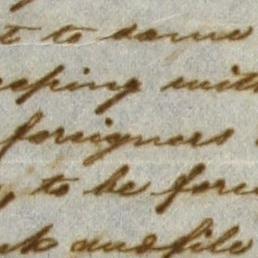 t to some
eeping with
foreigners
to be forc
nk and file